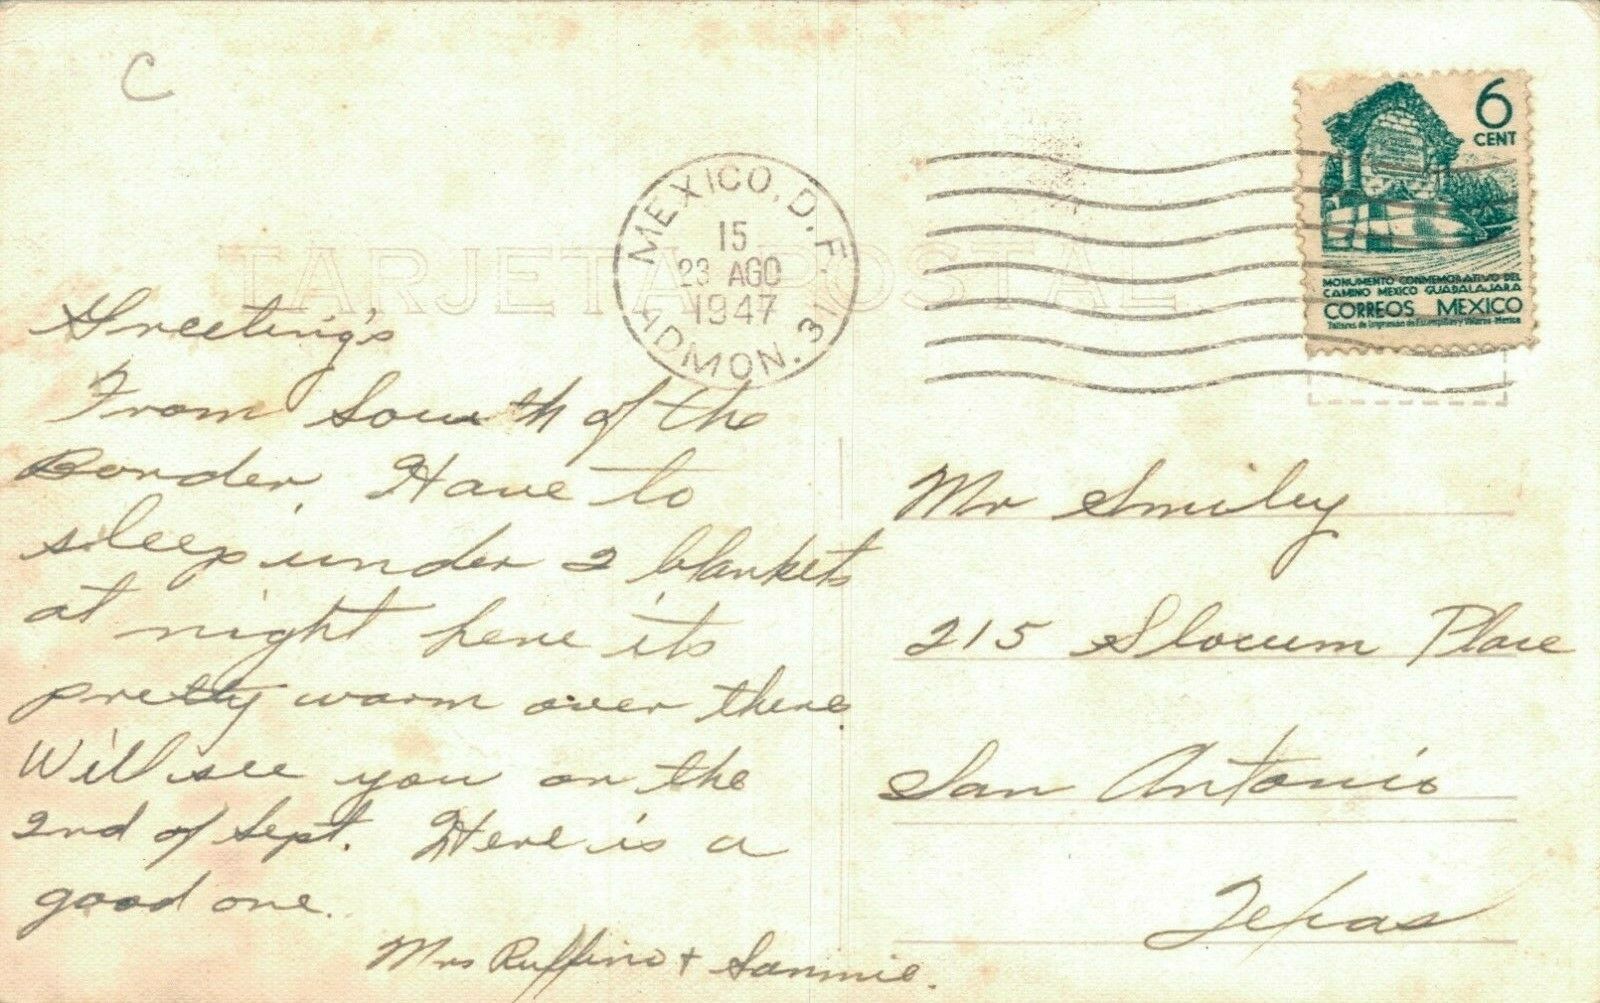 C
TARJETA POSTAL
MEXICO, D.F.
15
23 AGO
1947
ADMON. 31
6
CENT
MONUMENTO CONMEMORATIVO DEL
CAMINO MEXICO GUADALAJARA
CORREOS MEXICO
Talleres de Impresion de Estampillas y Valores-Mexico
Greeting's
From South of the
Border. Have to
sleep under 2 blankets
at night here its
pretty warm over there.
Will see you on the
2nd of Sept. Here is a
good one.
Mrs Ruffino + Sammie.
Mr Smiley
215 Slocum Place
San Antonio
Texas